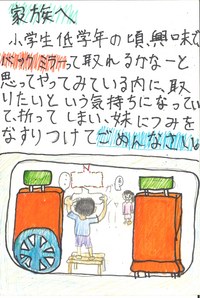 家族へ
小学生低学年の頃、興味で
バックミラーって取れるかなーと
思ってやってみている内に、取
りたいという気持ちになってい
て、折ってしまい、妹につみを
なすりつけてごめんなさい。